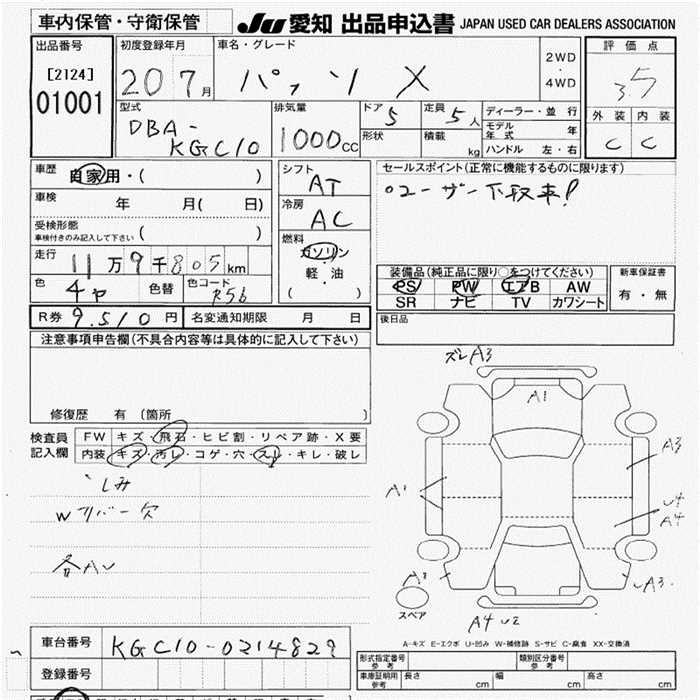 車内保管・守衛保管
JU 愛知 出品申込書 JAPAN USED CAR DEALERS ASSOCIATION
出品番号
[2124]
01001
初度登録年月
20 7月
車名・グレード
パッソ X
2WD
4WD
評価点
3.5
外装 内装
C C
型式
DBA-
KGC10
排気量
1000cc
ドア 5
形状
定員 5人
積載 kg
ディーラー・並行
モデル年式 年
ハンドル 左・右
車歴 自家用・( )
車検 年 月( 日)
受検形態
車検付きのみ記入して下さい ( )
走行 11万9千805km
色 色替 色コード R56
R券 9.510円 名変通知期限 月 日
シフト AT
冷房 AC
燃料
ガソリン
軽・油
( )
セールスポイント(正常に機能するものに限ります)
○ユーザー下取車!
装備品(純正品に限り○をつけてください)
PS PW エアB AW
SR ナビ TV カワシート
新車保証書
有・無
後日品
注意事項申告欄(不具合内容等は具体的に記入して下さい)
修復歴 有 〔箇所 〕
検査員記入欄
FW キズ・飛石・ヒビ割・リペア跡・X要
内装 キズ・汚レ・コゲ・穴・スレ・キレ・破レ
シミ
Wリバー欠
各AU
ズレA3
A1
A3
A1
U4
A4
A3
スペア
A4 U2
A-キズ E-エクボ U-凹み W-補修跡 S-サビ C-腐食 XX-交換済
車台番号 KGC10-0214829
登録番号
形式指定番号 参考
類別区分番号 参考
車庫証明用 参考 長さ cm 幅 cm 高さ cm